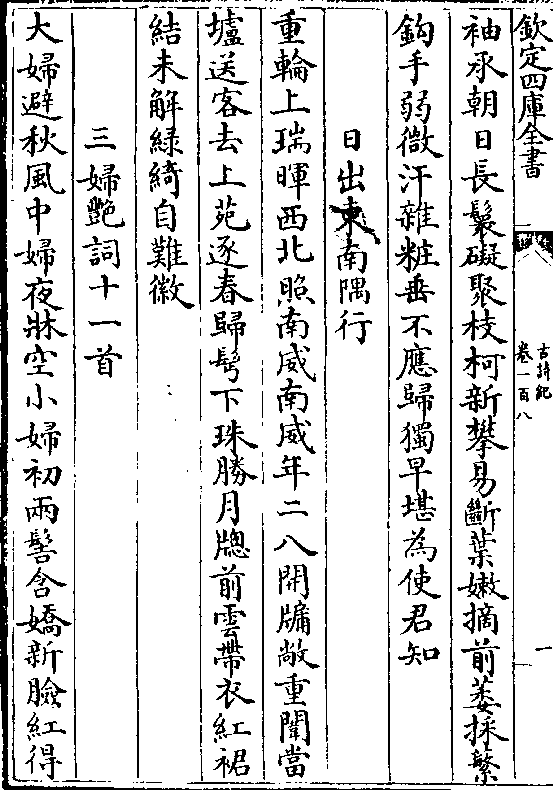 欽定四庫全書
古詩紀
卷一百八
一
袖承朝日長鬟礙聚枝柯新攀易斷葉嫩摘前萎採繁
鈎手弱微汗雜粧垂不應歸獨早堪為使君知
日出東南隅行
重輪上瑞暉西北照南威南威年二八開牖敞重闈當
壚送客去上苑逐春歸髩下珠勝月牕前雲帶衣紅裙
結未解緑綺自難徽
三婦艶詞十一首
大婦避秋風中婦夜牀空小婦初兩髻含嬌新臉紅得